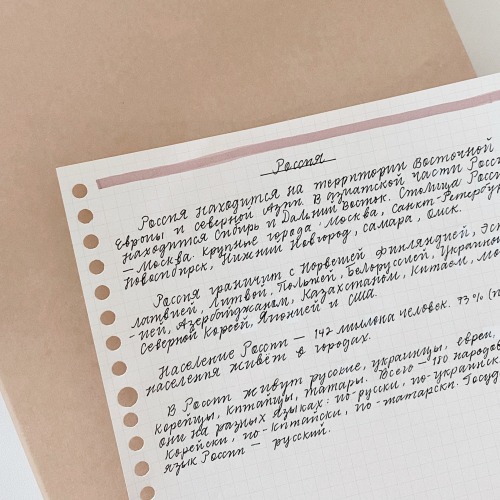 Россия
Россия находится на территории Восточной
Европы и северной Азии. В азиатской части Росси
находится Сибирь и Дальний Восток. Столица Росси
— Москва. Крупные города: Москва, Санкт-Петербур
Новосибирск, Нижний Новгород, Самара, Омск.
Россия граничит с Норвегией, Финляндией, Эст
Латвией, Литвой, Польшей, Белоруссией, Украиной
-ией, Азербайджаном, Казахстаном, Китаем, Мо
Северной Кореей, Японией и США.
Население России — 142 миллона человек. 73% (
населения живёт в городах.
В России живут русские, украинцы, евреи,
корейцы, китайцы, татары. Всего — 180 народов
они на разных языках: по-русски, по-украинск
корейски, по-китайски, по-татарски. Госуд
язык России — русский.